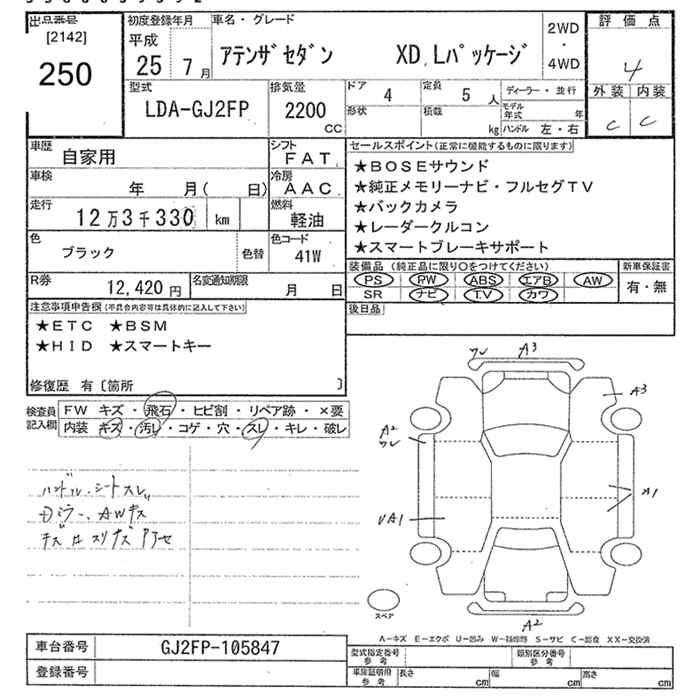 出品番号
[2142]
250
初度登録年月
平成
25 7月
車名・グレード
アテンザセダン XD Lパッケージ
2WD
・
4WD
評価点
4
外装 内装
C C
型式
LDA-GJ2FP
排気量
2200
CC
ドア
4
定員
5 人
形状
積載
kg
ディーラー・並行
モデル年式 年
ハンドル 左・右
車歴
自家用
シフト
FAT
車検
年 月( 日)
冷房
AAC
走行
12万3千330 km
燃料
軽油
色
ブラック
色替
色コード
41W
R券
12,420円
名変通知期限
月 日
セールスポイント(正常に機能するものに限ります)
★BOSEサウンド
★純正メモリーナビ・フルセグTV
★バックカメラ
★レーダークルコン
★スマートブレーキサポート
装備品(純正品に限り○をつけてください)
PS PW ABS エアB AW
SR ナビ T.V カワ
新車保証書
有・無
後日品
注意事項申告欄(不具合内容等は具体的に記入して下さい)
★ETC ★BSM
★HID ★スマートキー
修復歴 有〔箇所 〕
検査員記入欄
FW キズ・飛石・ヒビ割・リペア跡・×要
内装 キズ・汚レ・コゲ・穴・スレ・キレ・破レ
ハンドル・シートスレ
AWキズ
ワレ A3
A3
A2
ワレ
A1
UA1
A2
スペア
A−キズ E−エクボ U−凹み W−補修跡 S−サビ C−腐食 XX−交換済
車台番号
GJ2FP-105847
登録番号
型式指定番号
参考
類別区分番号
参考
車庫証明用
参考
長さ cm
幅 cm
高さ cm